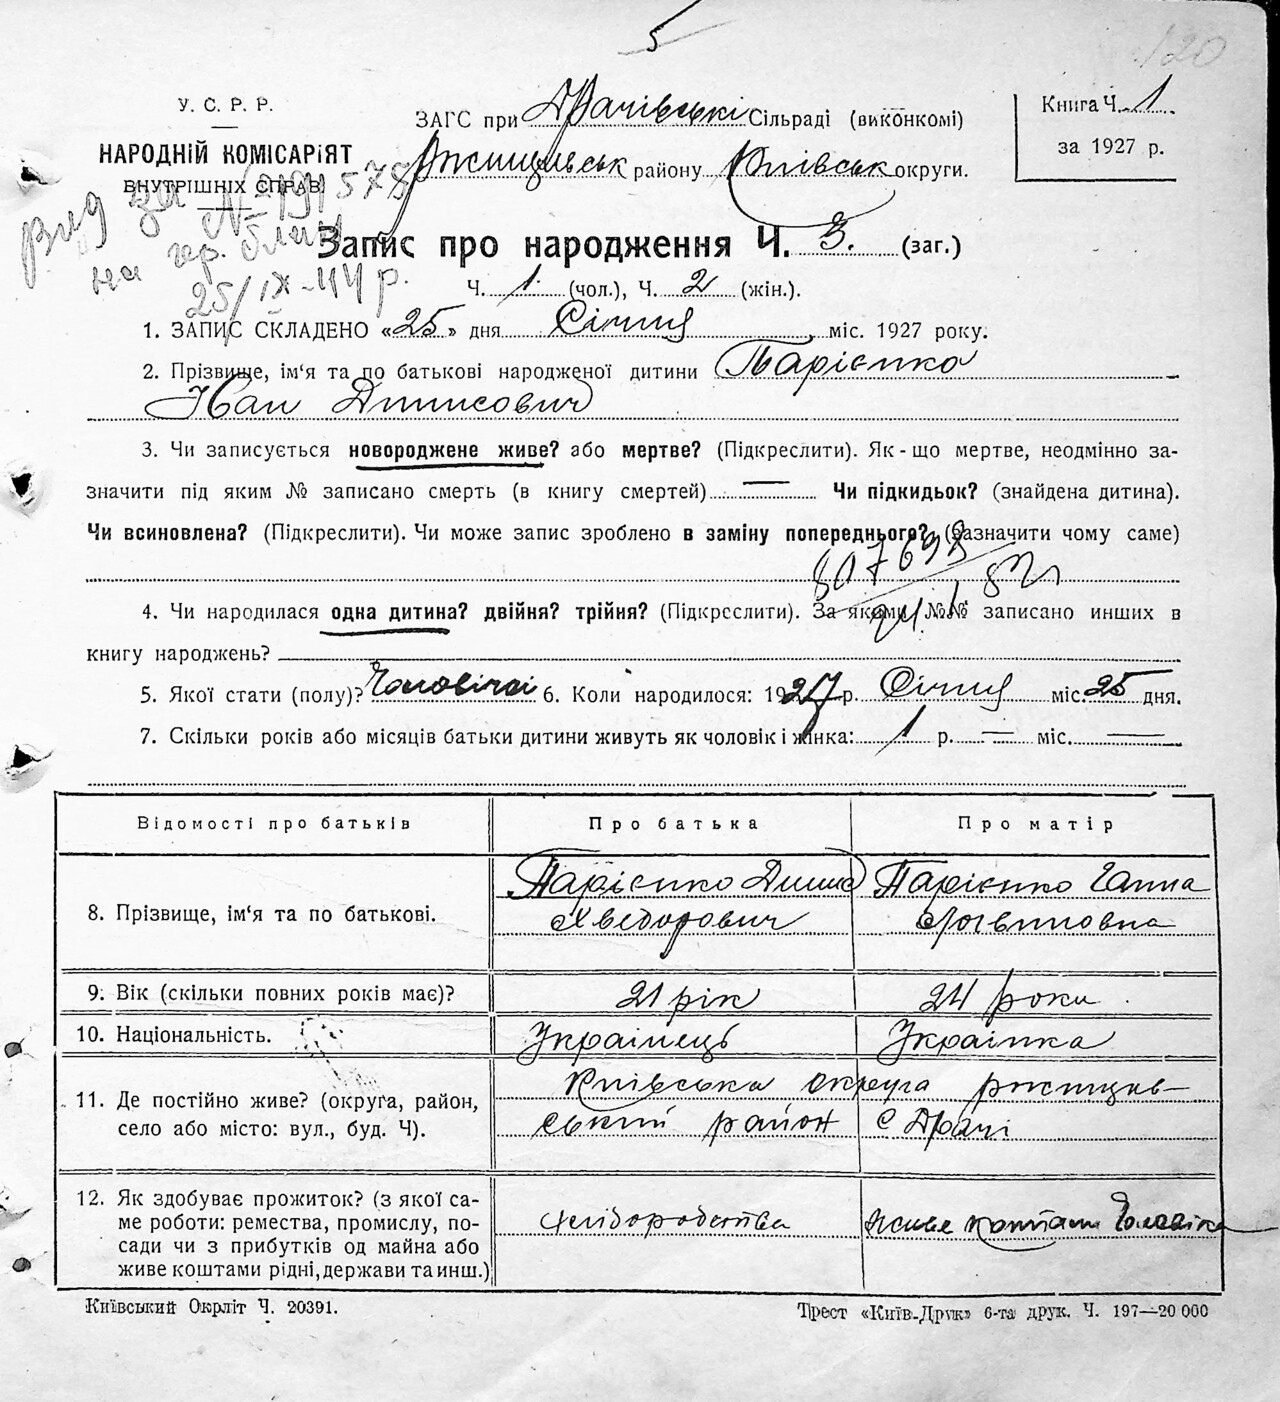 5
120
У. С. Р. Р.
НАРОДНІЙ КОМІСАРІЯТ
ВНУТРІШНІХ СПРАВ
ЗАГС при Драчівські Сільраді (виконкомі)
Ржищівськ району Київськ округи.
Книга Ч. 1
за 1927 р.
на
25/IX-44 р.
Запис про народження Ч. 3. (заг.)
Ч. 1. (чол.), Ч. 2 (жін.).
1. ЗАПИС СКЛАДЕНО «25» дня Січня міс. 1927 року.
2. Прізвище, ім‘я та по батькові народженої дитини Парієнко
Іван Динисович
3. Чи записується новороджене живе? або мертве? (Підкреслити). Як-що мертве, неодмінно за-
значити під яким № записано смерть (в книгу смертей) — Чи підкидьок? (знайдена дитина).
Чи всиновлена? (Підкреслити). Чи може запис зроблено в заміну попереднього? (Зазначити чому саме)
807698
4. Чи народилася одна дитина? двійня? трійня? (Підкреслити). За якими №№ записано инших в
книгу народжень?
5. Якої стати (полу)? Чоловічої 6. Коли народилося: 1927 р. Січня міс. 25 дня.
7. Скільки років або місяців батьки дитини живуть як чоловік і жінка: 1 р. — міс. —
Відомості про батьків
Про батька
Про матір
8. Прізвище, ім‘я та по батькові.
Парієнко Динис
Хведорович
Парієнко Ганна
Логвиновна
9. Вік (скільки повних років має)?
21 рік
24 роки
10. Національність.
Українець
Українка
11. Де постійно живе? (округа, район,
село або місто: вул., буд. Ч).
Київська округа ржищів-
ський район с Драчі
12. Як здобуває прожиток? (з якої са-
ме роботи: ремества, промислу, по-
сади чи з прибутків од майна або
живе коштами рідні, держави та инш.)
хліборобства
живе коштами чоловіка
Київський Окрліт Ч. 20391.
Трест «Київ-Друк» 6-та друк. Ч. 197—20 000